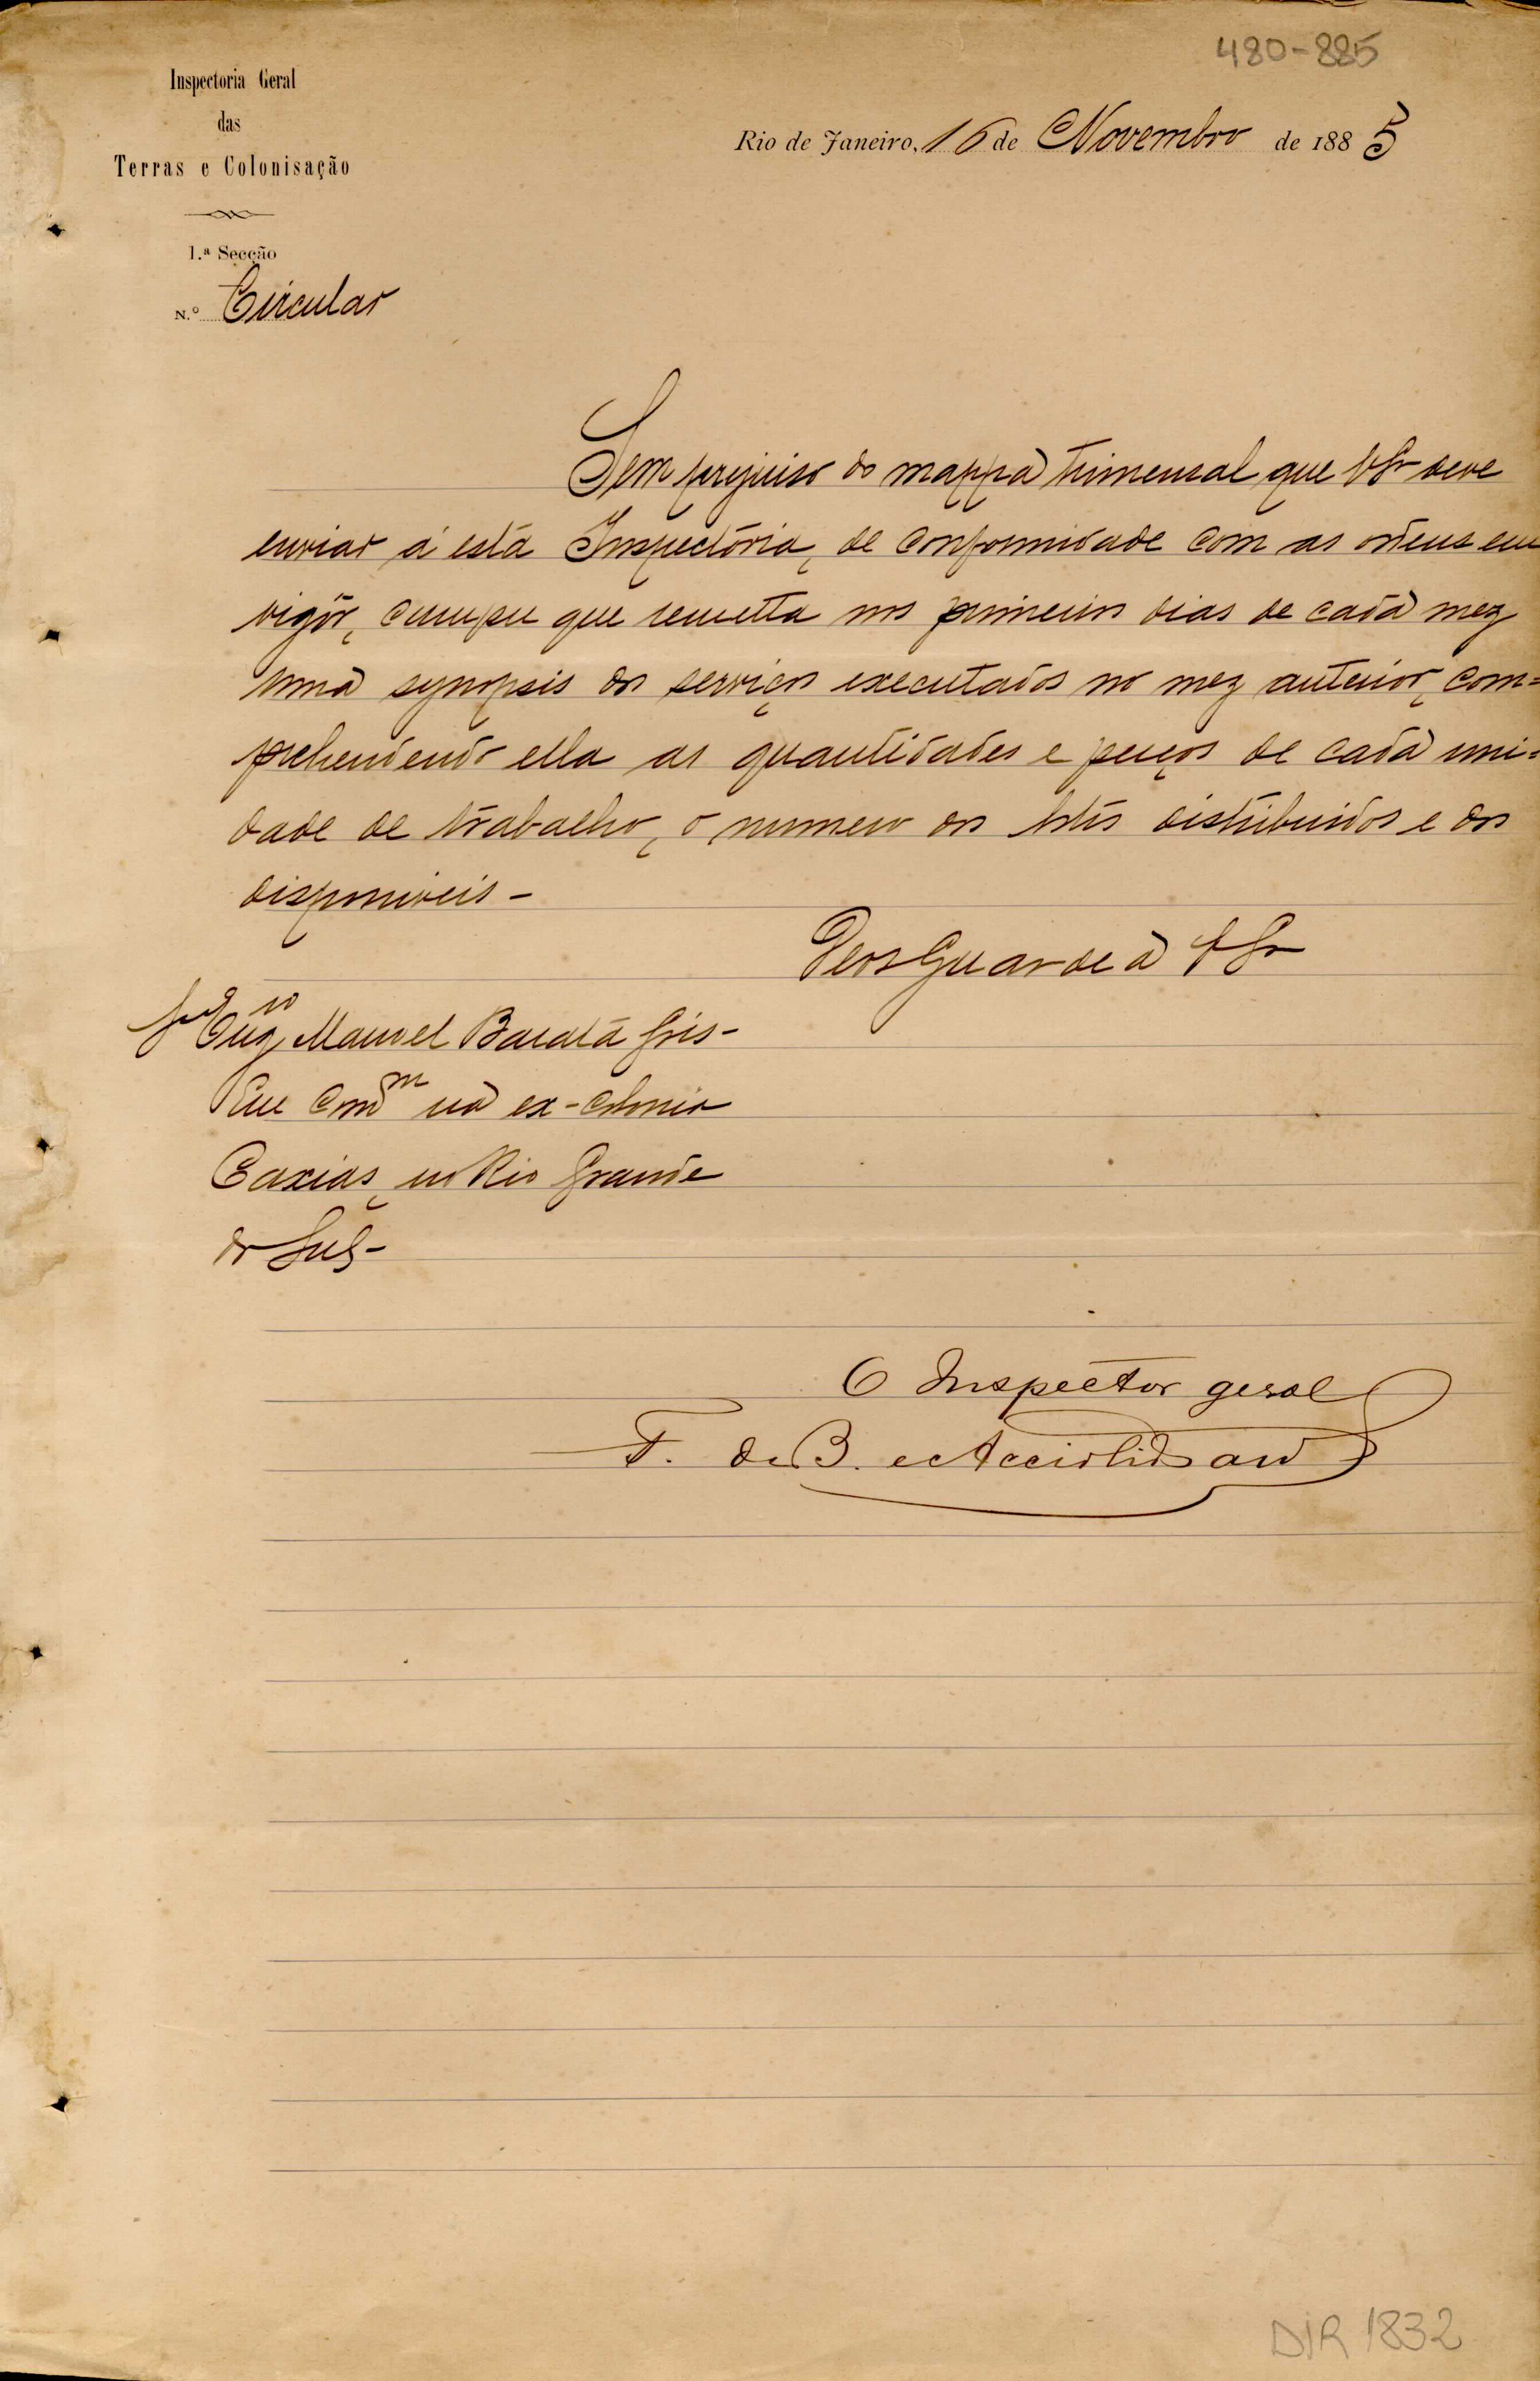 480-885
Inspectoria Geral
das
Terras e Colonisação
Rio de Janeiro, 16 de Novembro de 1885
1.ª Secção
N.º Circular
Sem prejuiso do mappa trimensal que VSª deve
enviar á esta Inspectoria, de conformidade com as ordens em
vigôr, cumpre que remetta nos primeiros dias de cada mez
uma synopsis dos serviços executados no mez anterior, com=
prehendendo ella as quantidades e preços de cada uni=
dade de trabalho, o numero dos lotes distribuidos e dos
disponiveis -
Deos Guarde a VSª
Sr Engº Manoel Barata Góis -
Em Comᵐ na ex-colonia
Caxias, no Rio Grande
do Sul -
O Inspector geral
F. de B. e Accioli de
DIR 1832